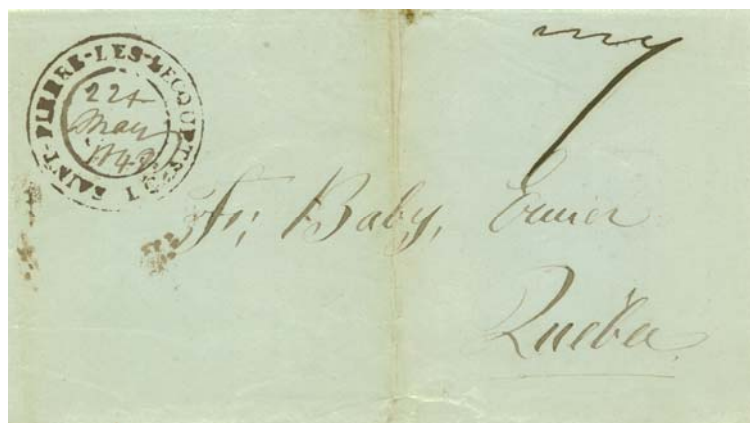 SAINT-PIERRE-LES-BECQUETS
May
7
Fr; Baby, Ecuier
Québec